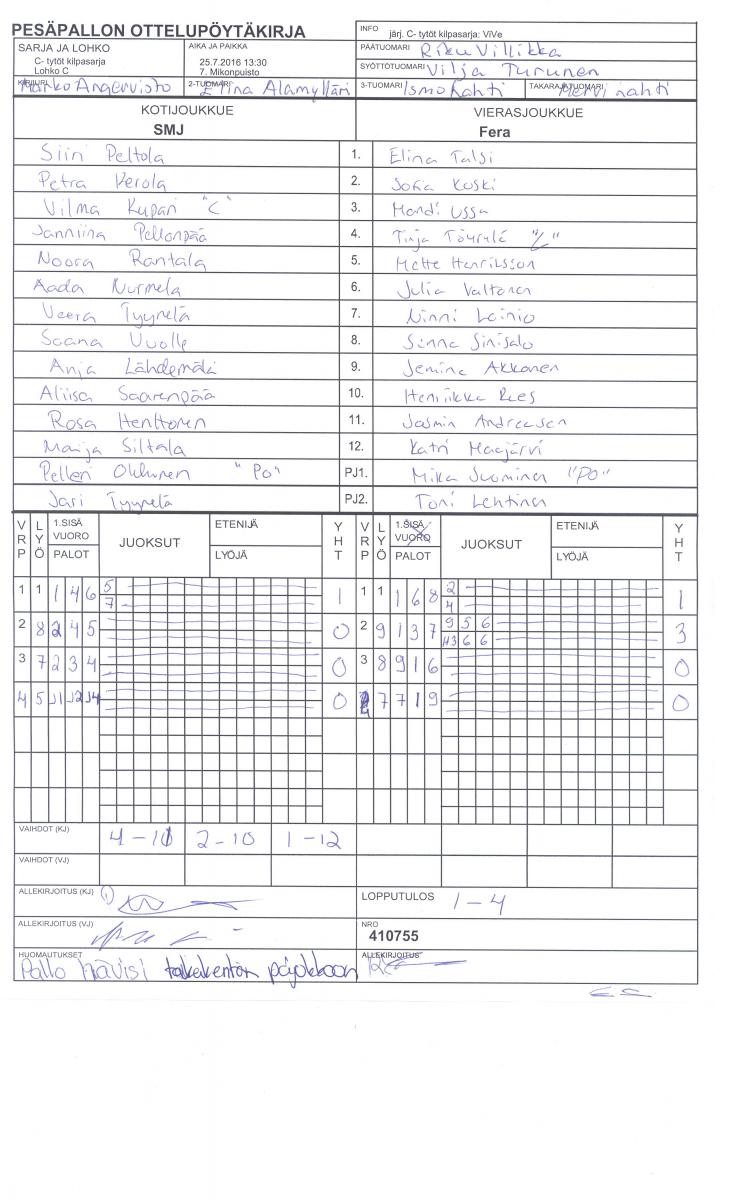 PESÄPALLON OTTELUPÖYTÄKIRJA
INFO järj. C- tytöt kilpasarja: ViVe
SARJA JA LOHKO
C- tytöt kilpasarja
Lohko C
AIKA JA PAIKKA
25.7.2016 13:30
7. Mikonpuisto
PÄÄTUOMARI Riku Villikka
SYÖTTÖTUOMARI Vilja Turunen
KIRJURI Marko Angervisto
2-TUOMARI Elina Alamylläri
3-TUOMARI Ismo Lahti
TAKARAJATUOMARI Mervi Lahti
KOTIJOUKKUE
SMJ
VIERASJOUKKUE
Fera
Siiri Peltola 1. Elina Talsi
Petra Verola 2. Sofia Koski
Vilma Kupari "C" 3. Mandi Ussa
Janniina Pellonpää 4. Tinja Töyrylä "C"
Noora Rantala 5. Mette Henriksson
Aada Nurmela 6. Julia Valtonen
Veera Tyynelä 7. Ninni Leinio
Saana Vuolle 8. Sanna Sinisalo
Anja Lähdemäki 9. Jemina Akkanen
Aliisa Saarenpää 10. Henriikka Rees
Rosa Henttonen 11. Jasmin Andreasen
Maija Siltala 12. Katri Maejärvi
Petteri Okkonen "PO" PJ1. Mika Suominen "PO"
Jari Tyynelä PJ2. Toni Lehtinen
VRP LYÖ 1.SISÄ VUORO PALOT JUOKSUT ETENIJÄ LYÖJÄ YHT VRP LYÖ 1.SISÄ VUORO PALOT JUOKSUT ETENIJÄ LYÖJÄ YHT
1 1 1 4 6 5 7 1 1 1 1 6 8 2 4 1
2 8 2 4 5 0 2 9 1 3 7 9 5 6 3 6 6 3
3 7 2 3 4 0 3 8 9 1 6 0
4 5 J1 J2 J4 0 7 7 1 9 0
VAIHDOT (KJ) 4-11 2-10 1-12
VAIHDOT (VJ)
ALLEKIRJOITUS (KJ)
LOPPUTULOS 1-4
ALLEKIRJOITUS (VJ)
NRO
410755
HUOMAUTUKSET
Pallo hävisi takakentän pöpelikköön
ALLEKIRJOITUS